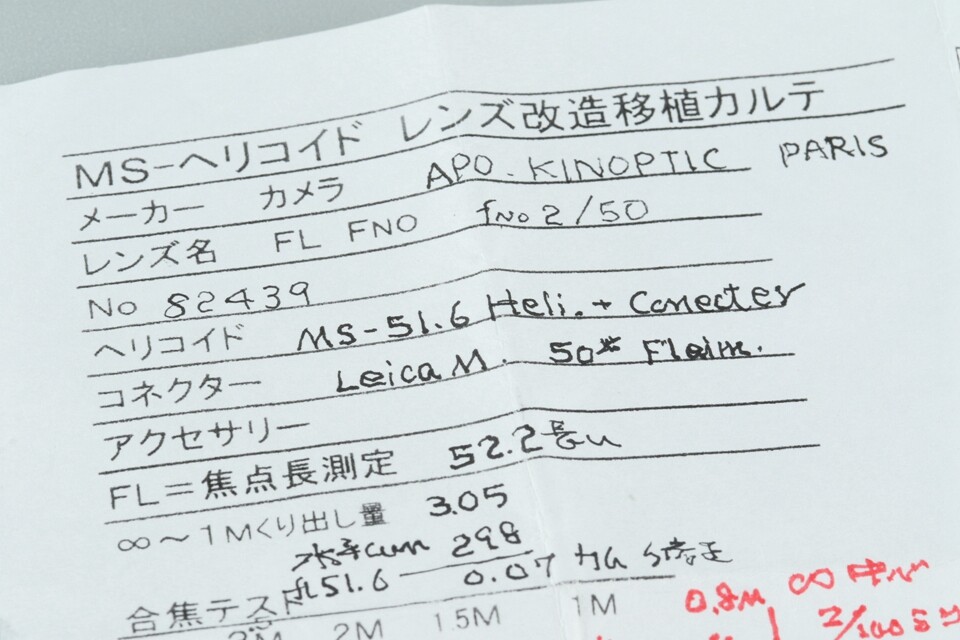 MS-ヘリコイド レンズ改造移植カルテ
メーカー カメラ APO. KINOPTIC PARIS
レンズ名 FL FNO fno 2/50
No 82439
ヘリコイド MS-51.6 Heli.+Conecter
コネクター Leica M. 50
アクセサリー
FL=焦点長測定 52.2
∞~1Mくり出し量 3.05
298
51.6 0.07 カム修正
合焦テスト 2M 1.5M 1M
0.8M ∞